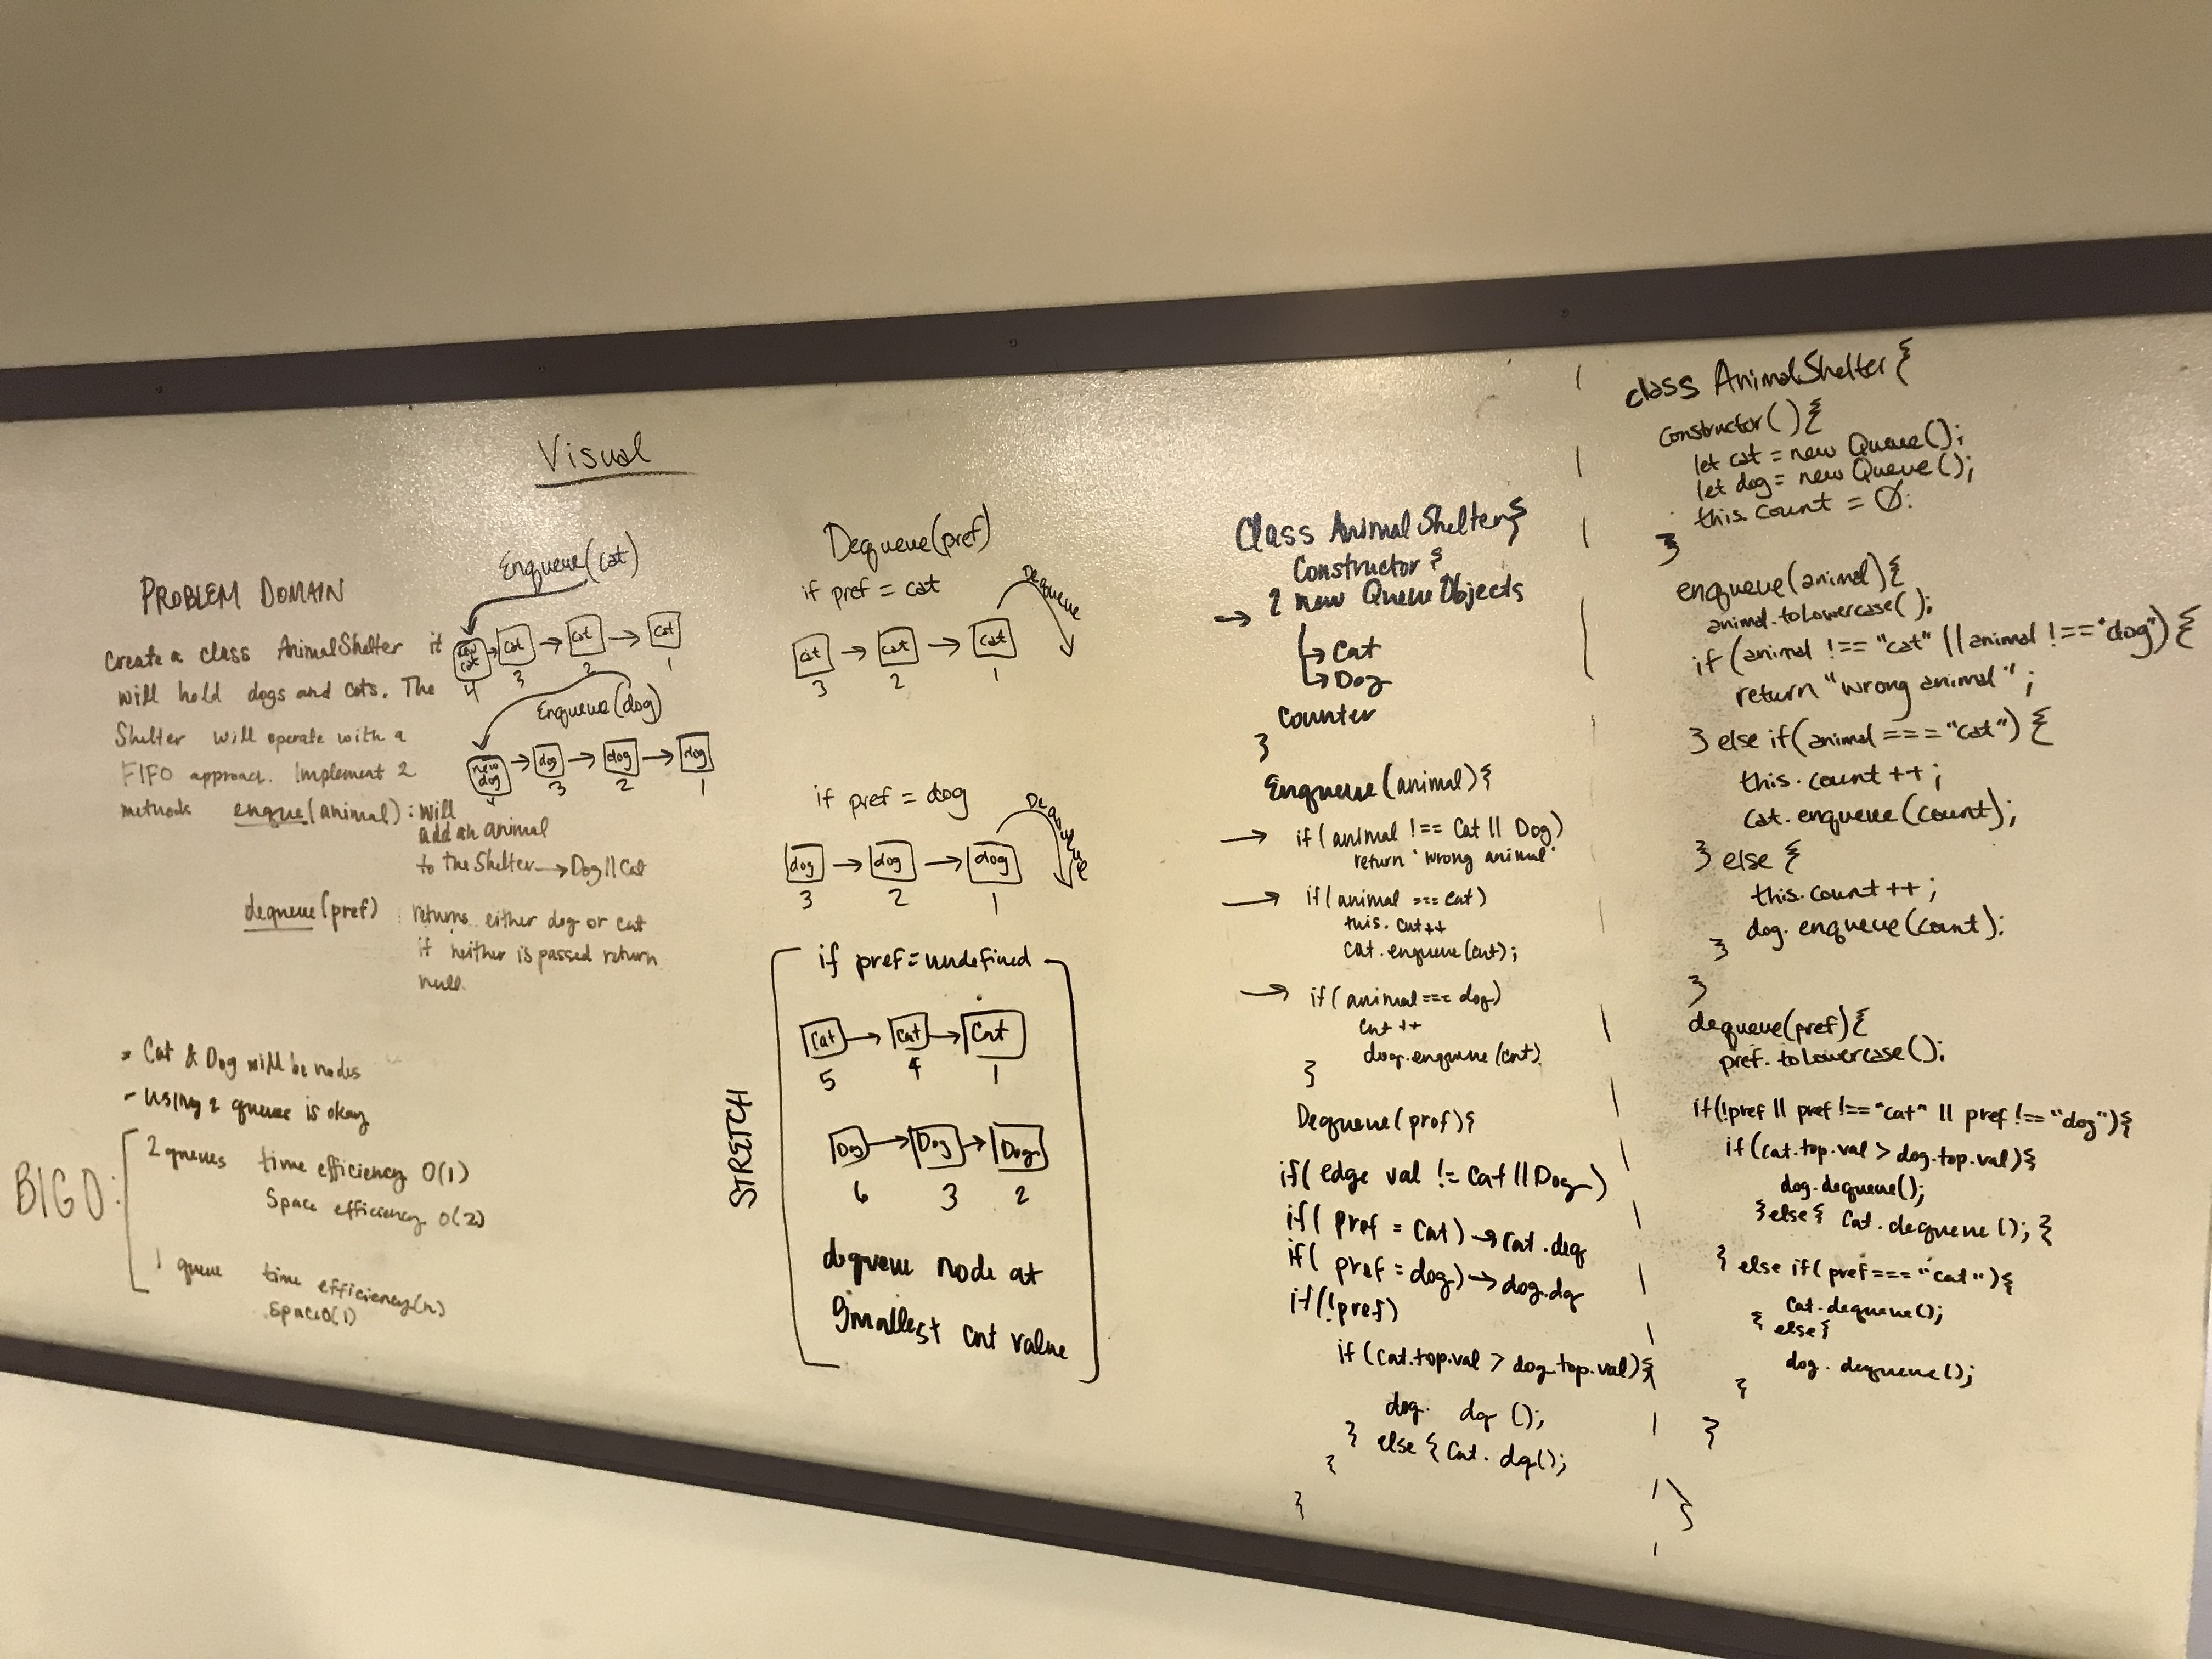 Visual
PROBLEM DOMAIN
Create a class AnimalShelter it
will hold dogs and cats. The
Shelter will operate with a
FIFO approach. Implement 2
methods enque(animal): will
add an animal
to the Shelter → Dog || Cat
dequeue(pref) : returns either dog or cat
if neither is passed return
null.
* Cat & Dog will be nodes
- using 2 queue is okay
BIG O:
2 queues time efficiency O(1)
Space efficiency O(2)
1 queue time efficiency (n)
Space O(1)
Enqueue(cat)
new cat → cat → cat → cat
4 3 2 1
Enqueue(dog)
new dog → dog → dog → dog
4 3 2 1
Dequeue(pref)
if pref = cat
Dequeue
cat → cat → cat
3 2 1
if pref = dog
Dequeue
dog → dog → dog
3 2 1
STRETCH
if pref = undefined
Cat → Cat → Cat
5 4 1
Dog → Dog → Dog
6 3 2
dequeue node at
smallest cnt value
Class AnimalShelter{
Constructor {
→ 2 new Queue Objects
↳ Cat
↳ Dog
Counter
}
Enqueue(animal){
→ if( animal !== Cat || Dog)
return 'wrong animal'
→ if(animal === Cat)
this. cnt++
cat.enqueue(cnt);
→ if(animal === dog)
cnt ++
dog.enqueue(cnt)
}
Dequeue(pref){
if( edge val != Cat || Dog)
if( pref = Cat) → cat.deq
if( pref = dog) → dog.dq
if(!pref)
if(cat.top.val > dog.top.val){
dog. dq ();
} else { cat. dq();
}
}
class AnimalShelter{
constructor(){
let cat = new Queue();
let dog = new Queue();
this.count = 0.
}
enqueue(animal){
animal.toLowercase();
if(animal !== "cat" || animal !== "dog"){
return "wrong animal";
} else if(animal === "cat"){
this.count ++;
cat.enqueue(count);
} else {
this.count ++;
dog.enqueue(count);
}
}
dequeue(pref){
pref.toLowercase();
if(!pref || pref !== "cat" || pref !== "dog"){
if(cat.top.val > dog.top.val){
dog.dequeue();
}else{ cat.dequeue(); {
} else if(pref === "cat"){
cat.dequeue();
{ else{
dog.dequeue();
}
}
}